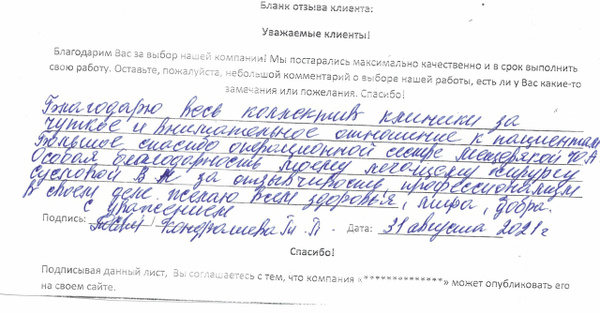 Бланк отзыва клиента:
Уважаемые клиенты!
Благодарим Вас за выбор нашей компании! Мы постарались максимально качественно и в срок выполнить
свою работу. Оставьте, пожалуйста, небольшой комментарий о выборе нашей работы, есть ли у Вас какие-то
замечания или пожелания. Спасибо!
Благодарю весь коллектив клиники за
чуткое и внимательное отношение к пациентам
Большое спасибо операционной сестре Ю.А
Особая благодарность моему лечащему хирургу
В за отзывчивость, профессионализм
в своем деле. Желаю всем здоровья, мира, добра.
с уважением
Подпись: Кондрашева Т. П. Дата: 31 августа 2021 г
Спасибо!
Подписывая данный лист, Вы соглашаетесь с тем, что компания «**************» может опубликовать его
на своем сайте.